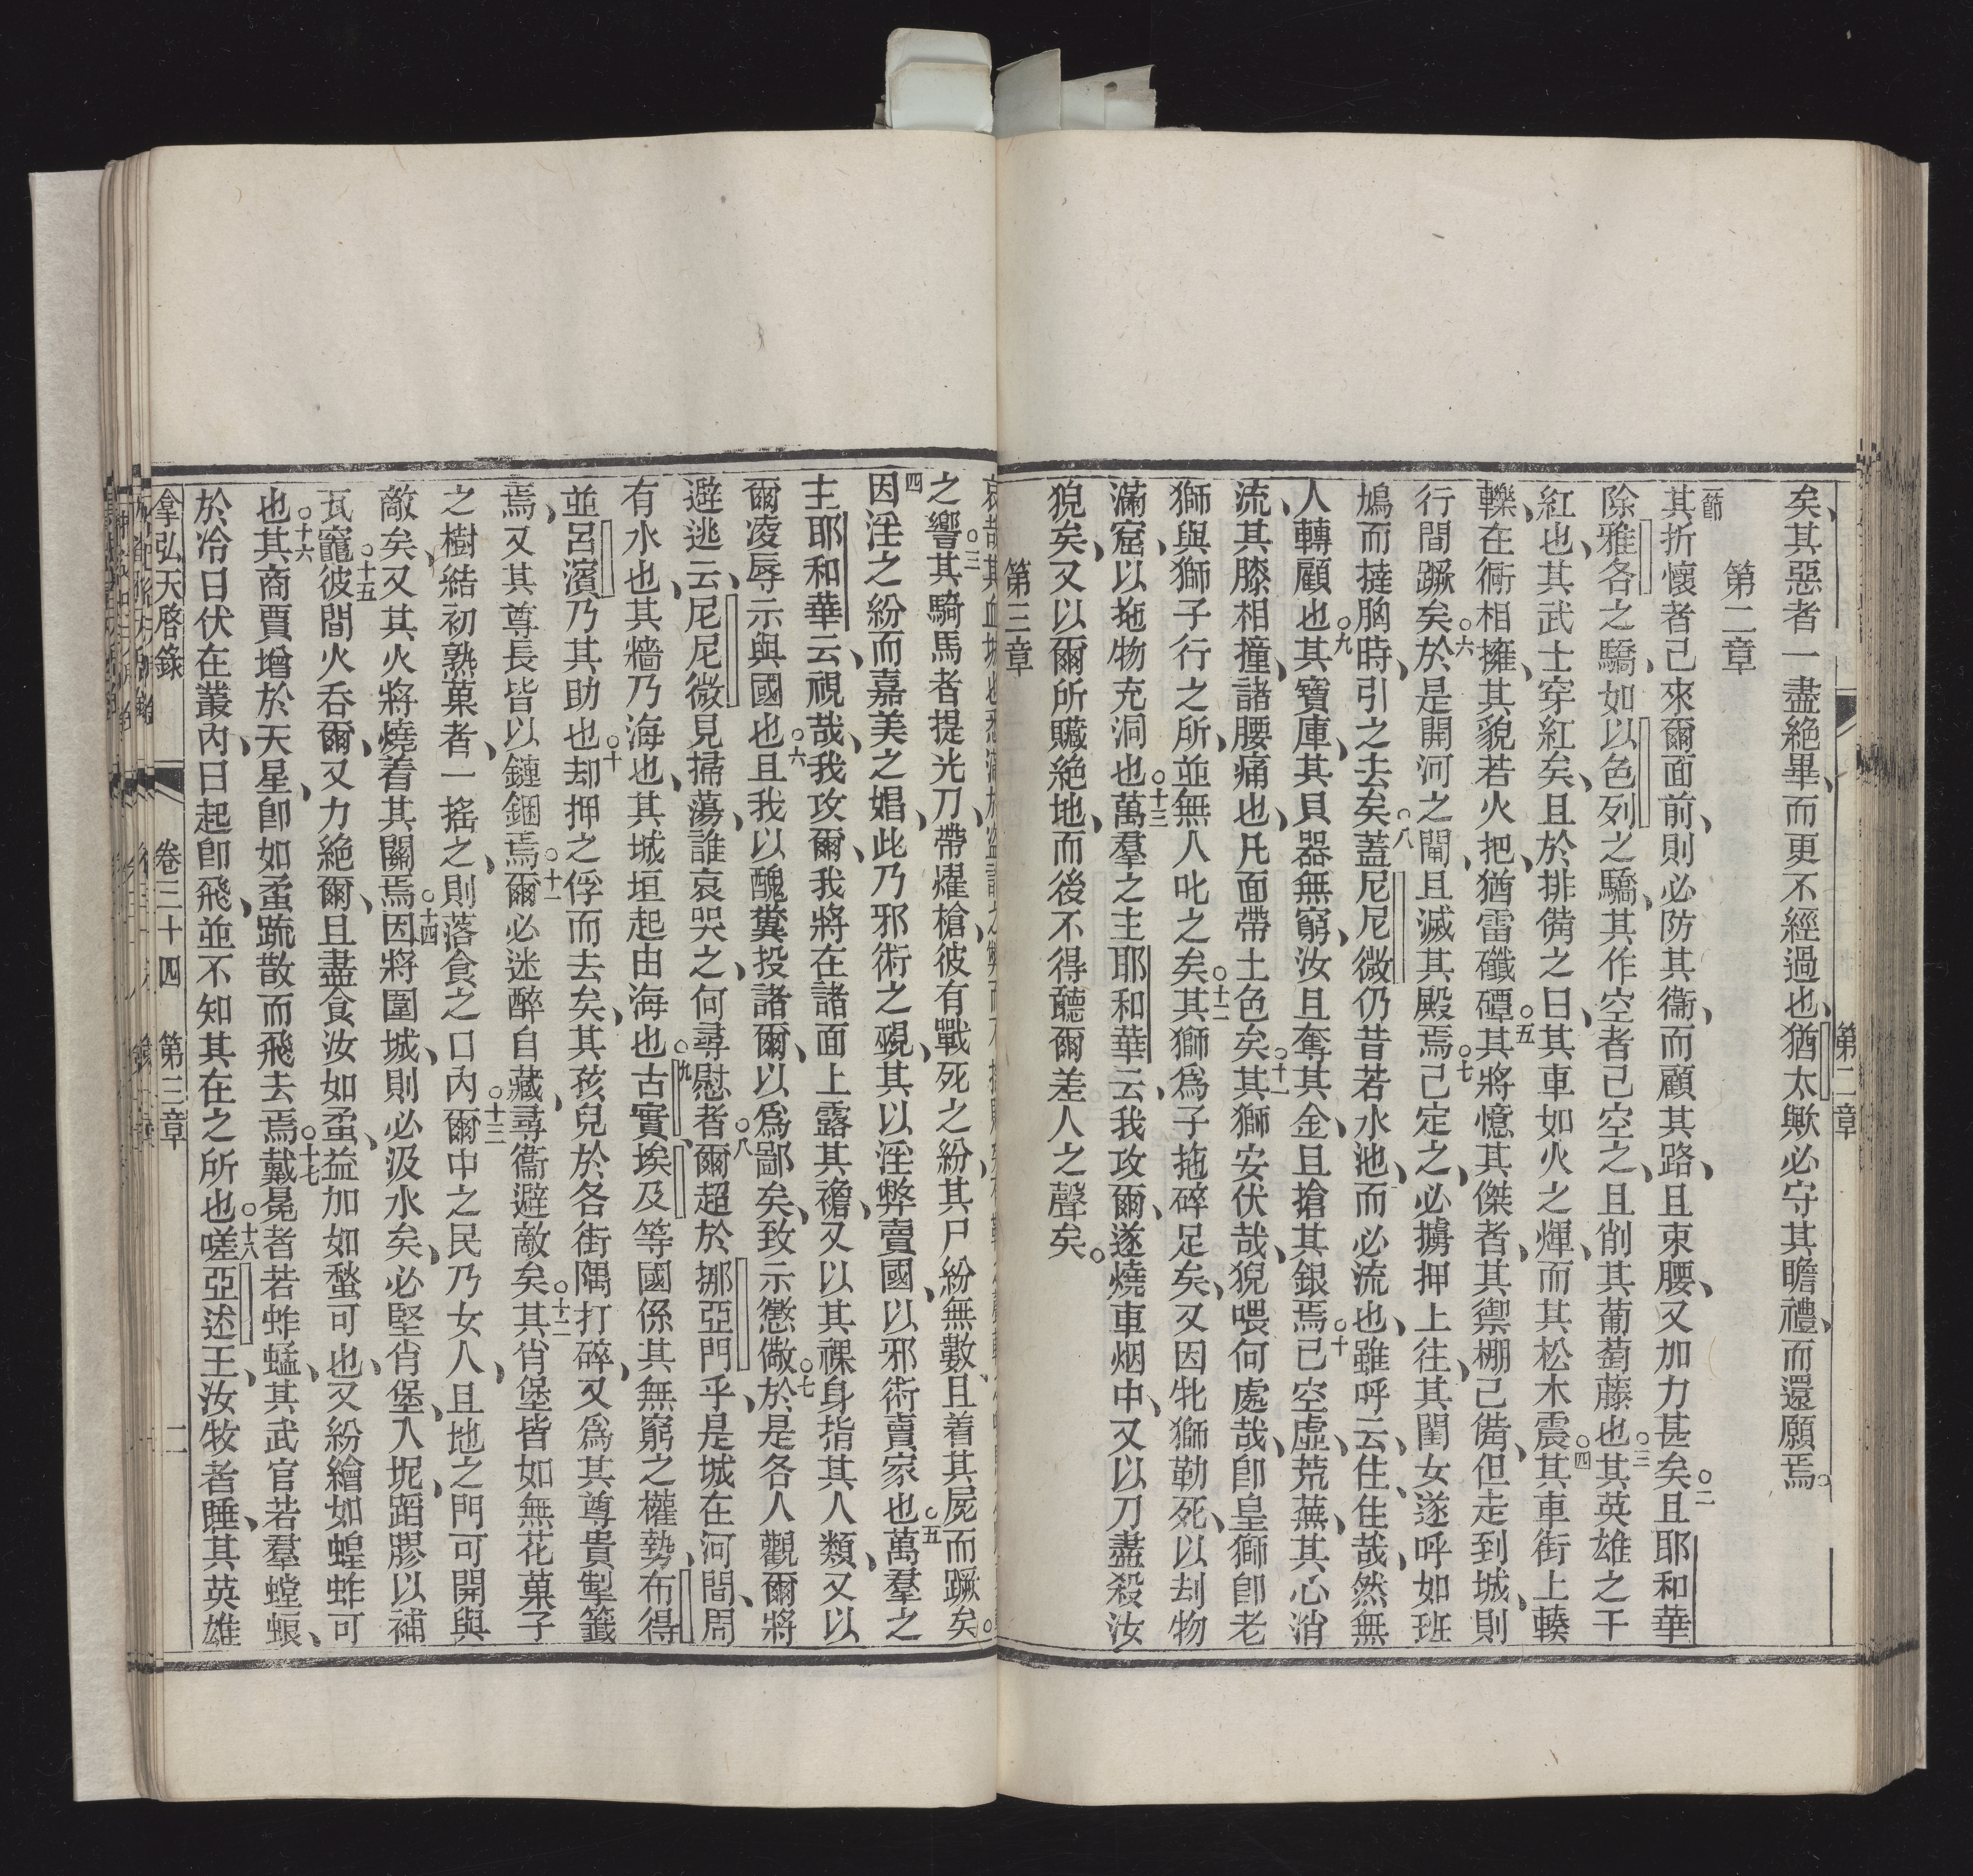 第二章
矣、其惡者一盡絕畢、而更不經過也、猶太歟必守其瞻禮、而還願焉。
第二章
一節其折懷者己來爾面前、則必防其衞、而顧其路、且束腰、又加力甚矣○二且耶和華
除雅各之驕、如以色列之驕、其作空者己空之、且削其葡萄藤也○三其英雄之干
紅也、其武士穿紅矣、且於排備之日、其車如火之煇、而其松木震○四其車街上輳
轢、在衕相擁、其貌若火把、猶雷礮磹○五其將憶其傑者、其禦棚己備、但走到城、則
行間蹶矣○六於是開河之閘、且滅其殿焉○七己定之、必擄押上往、其閨女遂呼如班
鳩、而撻胸時、引之去矣○八蓋尼尼微仍昔若水池、而必流也、雖呼云、住、住哉、然無
人轉顧也○九其寶庫、其貝器無窮、汝且奪其金、且搶其銀焉○十己空虛、荒蕪、其心消
流、其膝相撞、諸腰痛也、凡面帶土色矣○十一其獅安伏哉、猊喂何處哉、卽皇獅卽老
獅與獅子行之所、並無人叱之矣○十二其獅爲子拖碎足矣、又因牝獅勒死、以刦物
滿窟、以拖物充洞也○十三萬羣之主耶和華云、我攻爾、遂燒車烟中、又以刀盡殺汝
猊矣、又以爾所贜絕地、而後不得聽爾差人之聲矣。
第三章
之響○三其騎馬者提光刀、帶燿槍、彼有戰死之紛、其尸紛無數、且着其屍而蹶矣。
四因淫之紛、而嘉美之娼、此乃邪術之覡、其以淫弊賣國、以邪術賣家也○五萬羣之
主耶和華云、視哉、我攻爾、我將在諸面上露其襜、又以其祼身指其人類、又以
爾凌辱示與國也○六且我以醜糞投諸爾、以爲鄙矣、致示懲儆○七於是各人觀爾將
避逃云、尼尼微見掃蕩、誰哀哭之、何尋慰者○八爾超於挪亞門乎、是城在河間、周
有水也、其牆乃海也、其城垣起由海也○九古實、埃及等國係其無窮之權勢、布得
並呂濱乃其助也○十却押之俘而去矣、其孩兒於各街隅打碎、又爲其尊貴掣籤
焉、又其尊長皆以鏈錮焉○十一爾必迷醉自藏、尋衞避敵矣○十二其肖堡皆如無花菓子
之樹結初熟菓者、一搖之、則落食之口內○十三爾中之民乃女人、且地之門可開與
敵矣、又其火將燒着其關焉○十四因將圍城、則必汲水矣、必堅肖堡、入坭、蹈膠以補
瓦竈○十五彼間火呑爾、又力絕爾、且盡食汝如蚉、益加如蝥可也、又紛繪如蝗蚱可
也○十六其商賈增於天星、卽如蚉䟽散而飛去焉○十七戴冕者若蚱蜢、其武官若羣螳蜋、
於冷日伏在叢內、日起卽飛、並不知其在之所也○十八嗟亞述王、汝牧者睡、其英雄
拿弘天啓錄 卷三十四 第三章 二